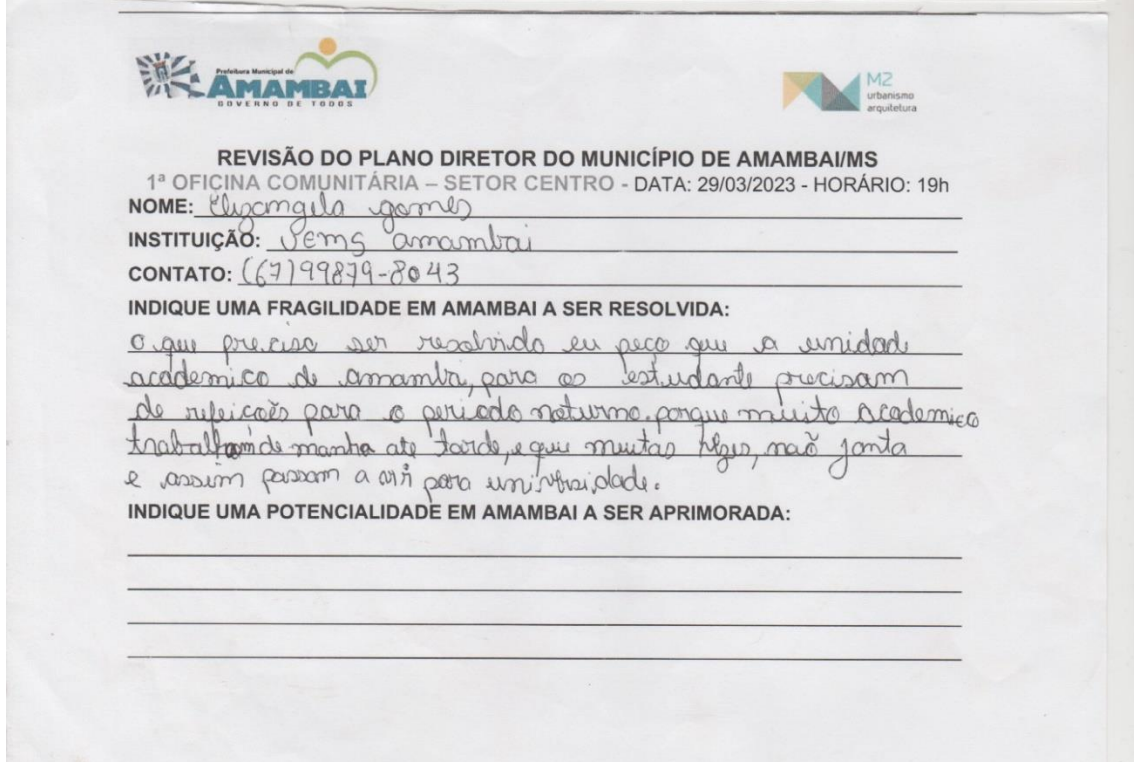 Prefeitura Municipal de
AMAMBAI
GOVERNO DE TODOS
M2
urbanismo
arquitetura
REVISÃO DO PLANO DIRETOR DO MUNICÍPIO DE AMAMBAI/MS
1ª OFICINA COMUNITÁRIA – SETOR CENTRO - DATA: 29/03/2023 - HORÁRIO: 19h
NOME: Elizangela gomes
INSTITUIÇÃO: UEMS amambai
CONTATO: (67)99879-8043
INDIQUE UMA FRAGILIDADE EM AMAMBAI A SER RESOLVIDA:
O que precisa ser resolvido eu peço que a unidade
academico de amambi, para os estudante precisam
de refeições para o periodo noturno. porque muito academico
trabalham de manha ate tarde, e que muitas vezes, naõ janta
e assim passam a vir para universidade.
INDIQUE UMA POTENCIALIDADE EM AMAMBAI A SER APRIMORADA: